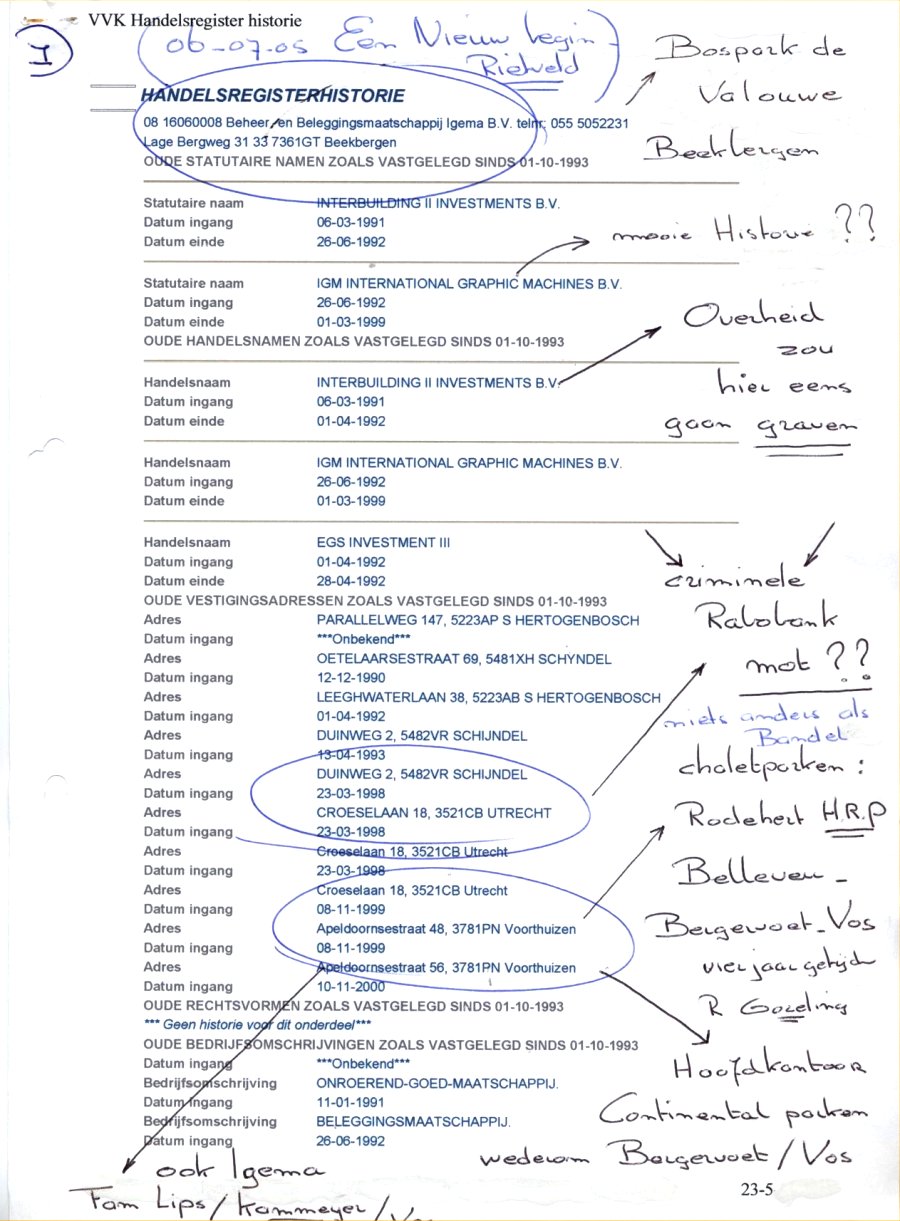 VVK Handelsregister historie
I
06-07-05 Een Nieuw begin
Rietveld
Bospark de
Valouwe
Beekbergen
HANDELSREGISTERHISTORIE
08 16060008 Beheer en Beleggingsmaatschappij Igema B.V. telnr: 055 5052231
Lage Bergweg 31 33 7361GT Beekbergen
OUDE STATUTAIRE NAMEN ZOALS VASTGELEGD SINDS 01-10-1993
Statutaire naam INTERBUILDING II INVESTMENTS B.V.
Datum ingang 06-03-1991
Datum einde 26-06-1992
mooie Historie ??
Statutaire naam IGM INTERNATIONAL GRAPHIC MACHINES B.V.
Datum ingang 26-06-1992
Datum einde 01-03-1999
OUDE HANDELSNAMEN ZOALS VASTGELEGD SINDS 01-10-1993
Overheid
zou
hier eens
gaan graven
Handelsnaam INTERBUILDING II INVESTMENTS B.V.
Datum ingang 06-03-1991
Datum einde 01-04-1992
Handelsnaam IGM INTERNATIONAL GRAPHIC MACHINES B.V.
Datum ingang 26-06-1992
Datum einde 01-03-1999
Handelsnaam EGS INVESTMENT III
Datum ingang 01-04-1992
Datum einde 28-04-1992
OUDE VESTIGINGSADRESSEN ZOALS VASTGELEGD SINDS 01-10-1993
Adres PARALLELWEG 147, 5223AP S HERTOGENBOSCH
Datum ingang ***Onbekend***
Adres OETELAARSESTRAAT 69, 5481XH SCHYNDEL
Datum ingang 12-12-1990
Adres LEEGHWATERLAAN 38, 5223AB S HERTOGENBOSCH
Datum ingang 01-04-1992
Adres DUINWEG 2, 5482VR SCHIJNDEL
Datum ingang 13-04-1993
Adres DUINWEG 2, 5482VR SCHIJNDEL
Datum ingang 23-03-1998
Adres CROESELAAN 18, 3521CB UTRECHT
Datum ingang 23-03-1998
Adres Croeselaan 18, 3521CB Utrecht
Datum ingang 23-03-1998
Adres Croeselaan 18, 3521CB Utrecht
Datum ingang 08-11-1999
Adres Apeldoornsestraat 48, 3781PN Voorthuizen
Datum ingang 08-11-1999
Adres Apeldoornsestraat 56, 3781PN Voorthuizen
Datum ingang 10-11-2000
OUDE RECHTSVORMEN ZOALS VASTGELEGD SINDS 01-10-1993
*** Geen historie voor dit onderdeel***
OUDE BEDRIJFSOMSCHRIJVINGEN ZOALS VASTGELEGD SINDS 01-10-1993
Datum ingang ***Onbekend***
Bedrijfsomschrijving ONROEREND-GOED-MAATSCHAPPIJ.
Datum ingang 11-01-1991
Bedrijfsomschrijving BELEGGINGSMAATSCHAPPIJ.
Datum ingang 26-06-1992
criminele
Rabobank
mot ??
niets anders als
Bandel
chaletparken :
Rodehert H.R.P
Belleven -
Bergervoet-Vos
vier jaar getijd
R Gozeling
Hoofdkantoor
Continental parken
wederom Bergervoet / Vos
ook Igema
Fam Lips / Kammeyer /
23-5